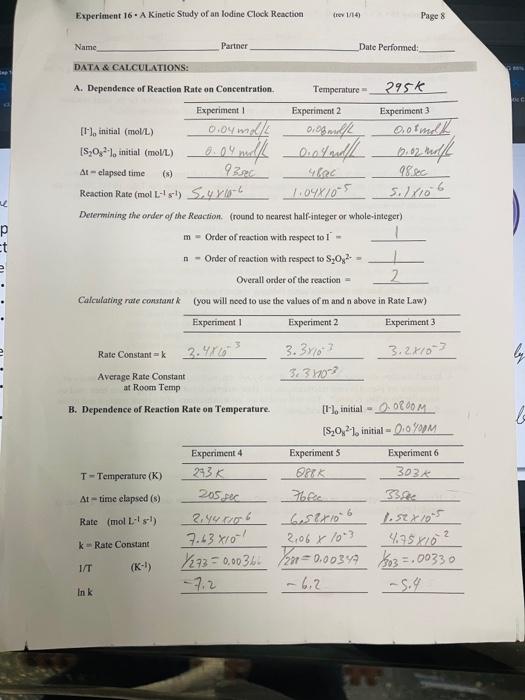 Experiment 16 • A Kinetic Study of an Iodine Clock Reaction (rev 1/14) Page 8
Name Partner Date Performed:
DATA & CALCULATIONS:
A. Dependence of Reaction Rate on Concentration. Temperature = 295K
Experiment 1 Experiment 2 Experiment 3
[I-]o initial (mol/L) 0.04 mol/L 0.08 mol/L 0.08 mol/L
[S2O8 2-]o, initial (mol/L) 0.04 mol/L 0.04 mol/L 0.02 mol/L
Δt = elapsed time (s) 93 sec 48 sec 98 sec
Reaction Rate (mol L-1 s-1) 5.4x10-6 1.04x10-5 5.1x10-6
Determining the order of the Reaction. (round to nearest half-integer or whole-integer)
m = Order of reaction with respect to I- = 1
n = Order of reaction with respect to S2O8 2- = 1
Overall order of the reaction = 2
Calculating rate constant k (you will need to use the values of m and n above in Rate Law)
Experiment 1 Experiment 2 Experiment 3
Rate Constant = k 3.4x10-3 3.3x10-3 3.2x10-3
Average Rate Constant 3.3x10-3
at Room Temp
B. Dependence of Reaction Rate on Temperature. [I-]o initial = 0.0800M
[S2O8 2-]o, initial = 0.040M
Experiment 4 Experiment 5 Experiment 6
T = Temperature (K) 273K 303K
Δt = time elapsed (s) 205 sec 76 sec 33 sec
Rate (mol L-1 s-1) 2.44x10-6 6.58x10-6 1.52x10-5
k = Rate Constant 7.63x10-1 2.06x10-3 4.75x10-2
1/T (K-1) 1/273 = 0.00366 = 0.00347 1/303 = .00330
ln k -7.2 -6.2 -5.4